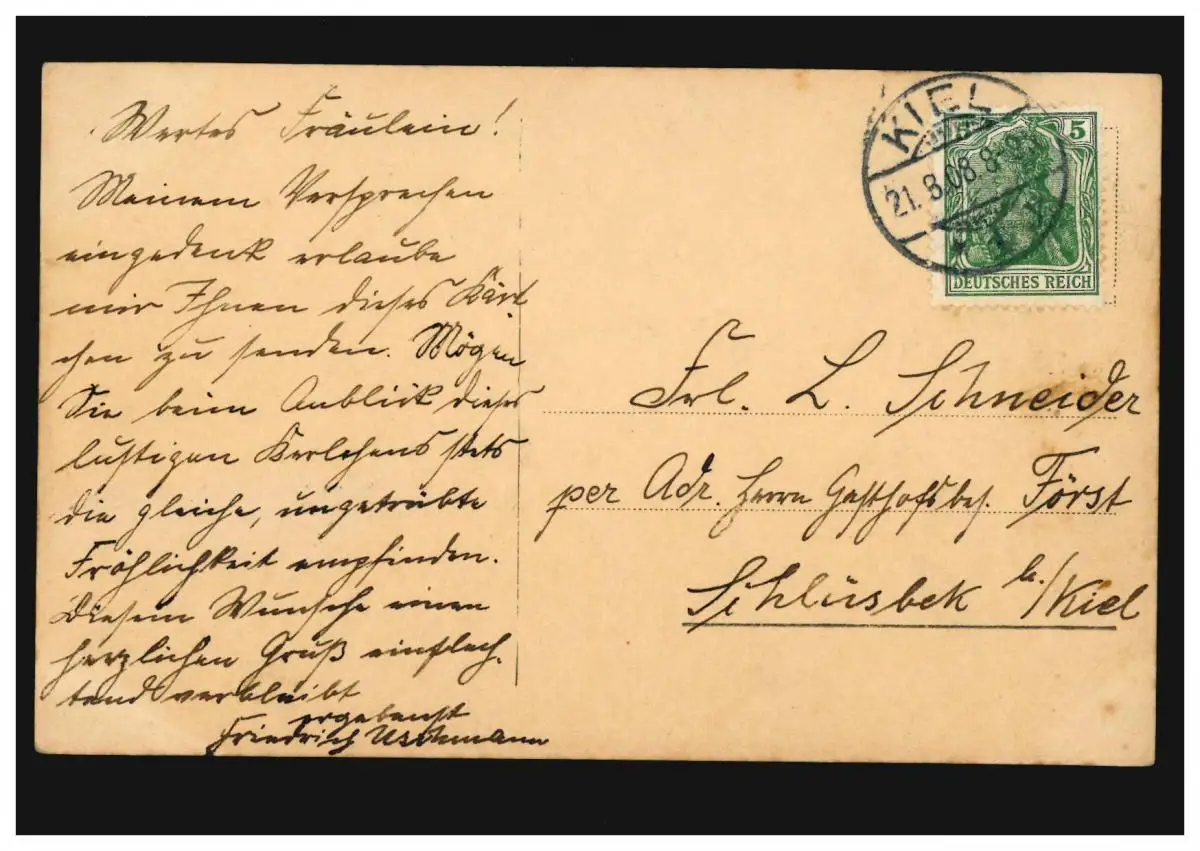 Wertes Fräulein!
Meinem Versprechen
eingedenk erlaube
mir Ihnen dieses Kärt
chen zu senden. Mögen
Sie beim Anblick dieses
lustigen Kerlchens stets
die gleiche, ungetrübte
Fröhlichkeit empfinden.
Diesem Wunsche einen
herzlichen Gruß einflech-
tend verbleibt
ergebenst
Friedrich
KIEL
21.8.08.8-9
5
DEUTSCHES REICH
Frl. L. Schneider
per Adr. Herrn Gasthofsbes. Först
Schlüsbek b./Kiel